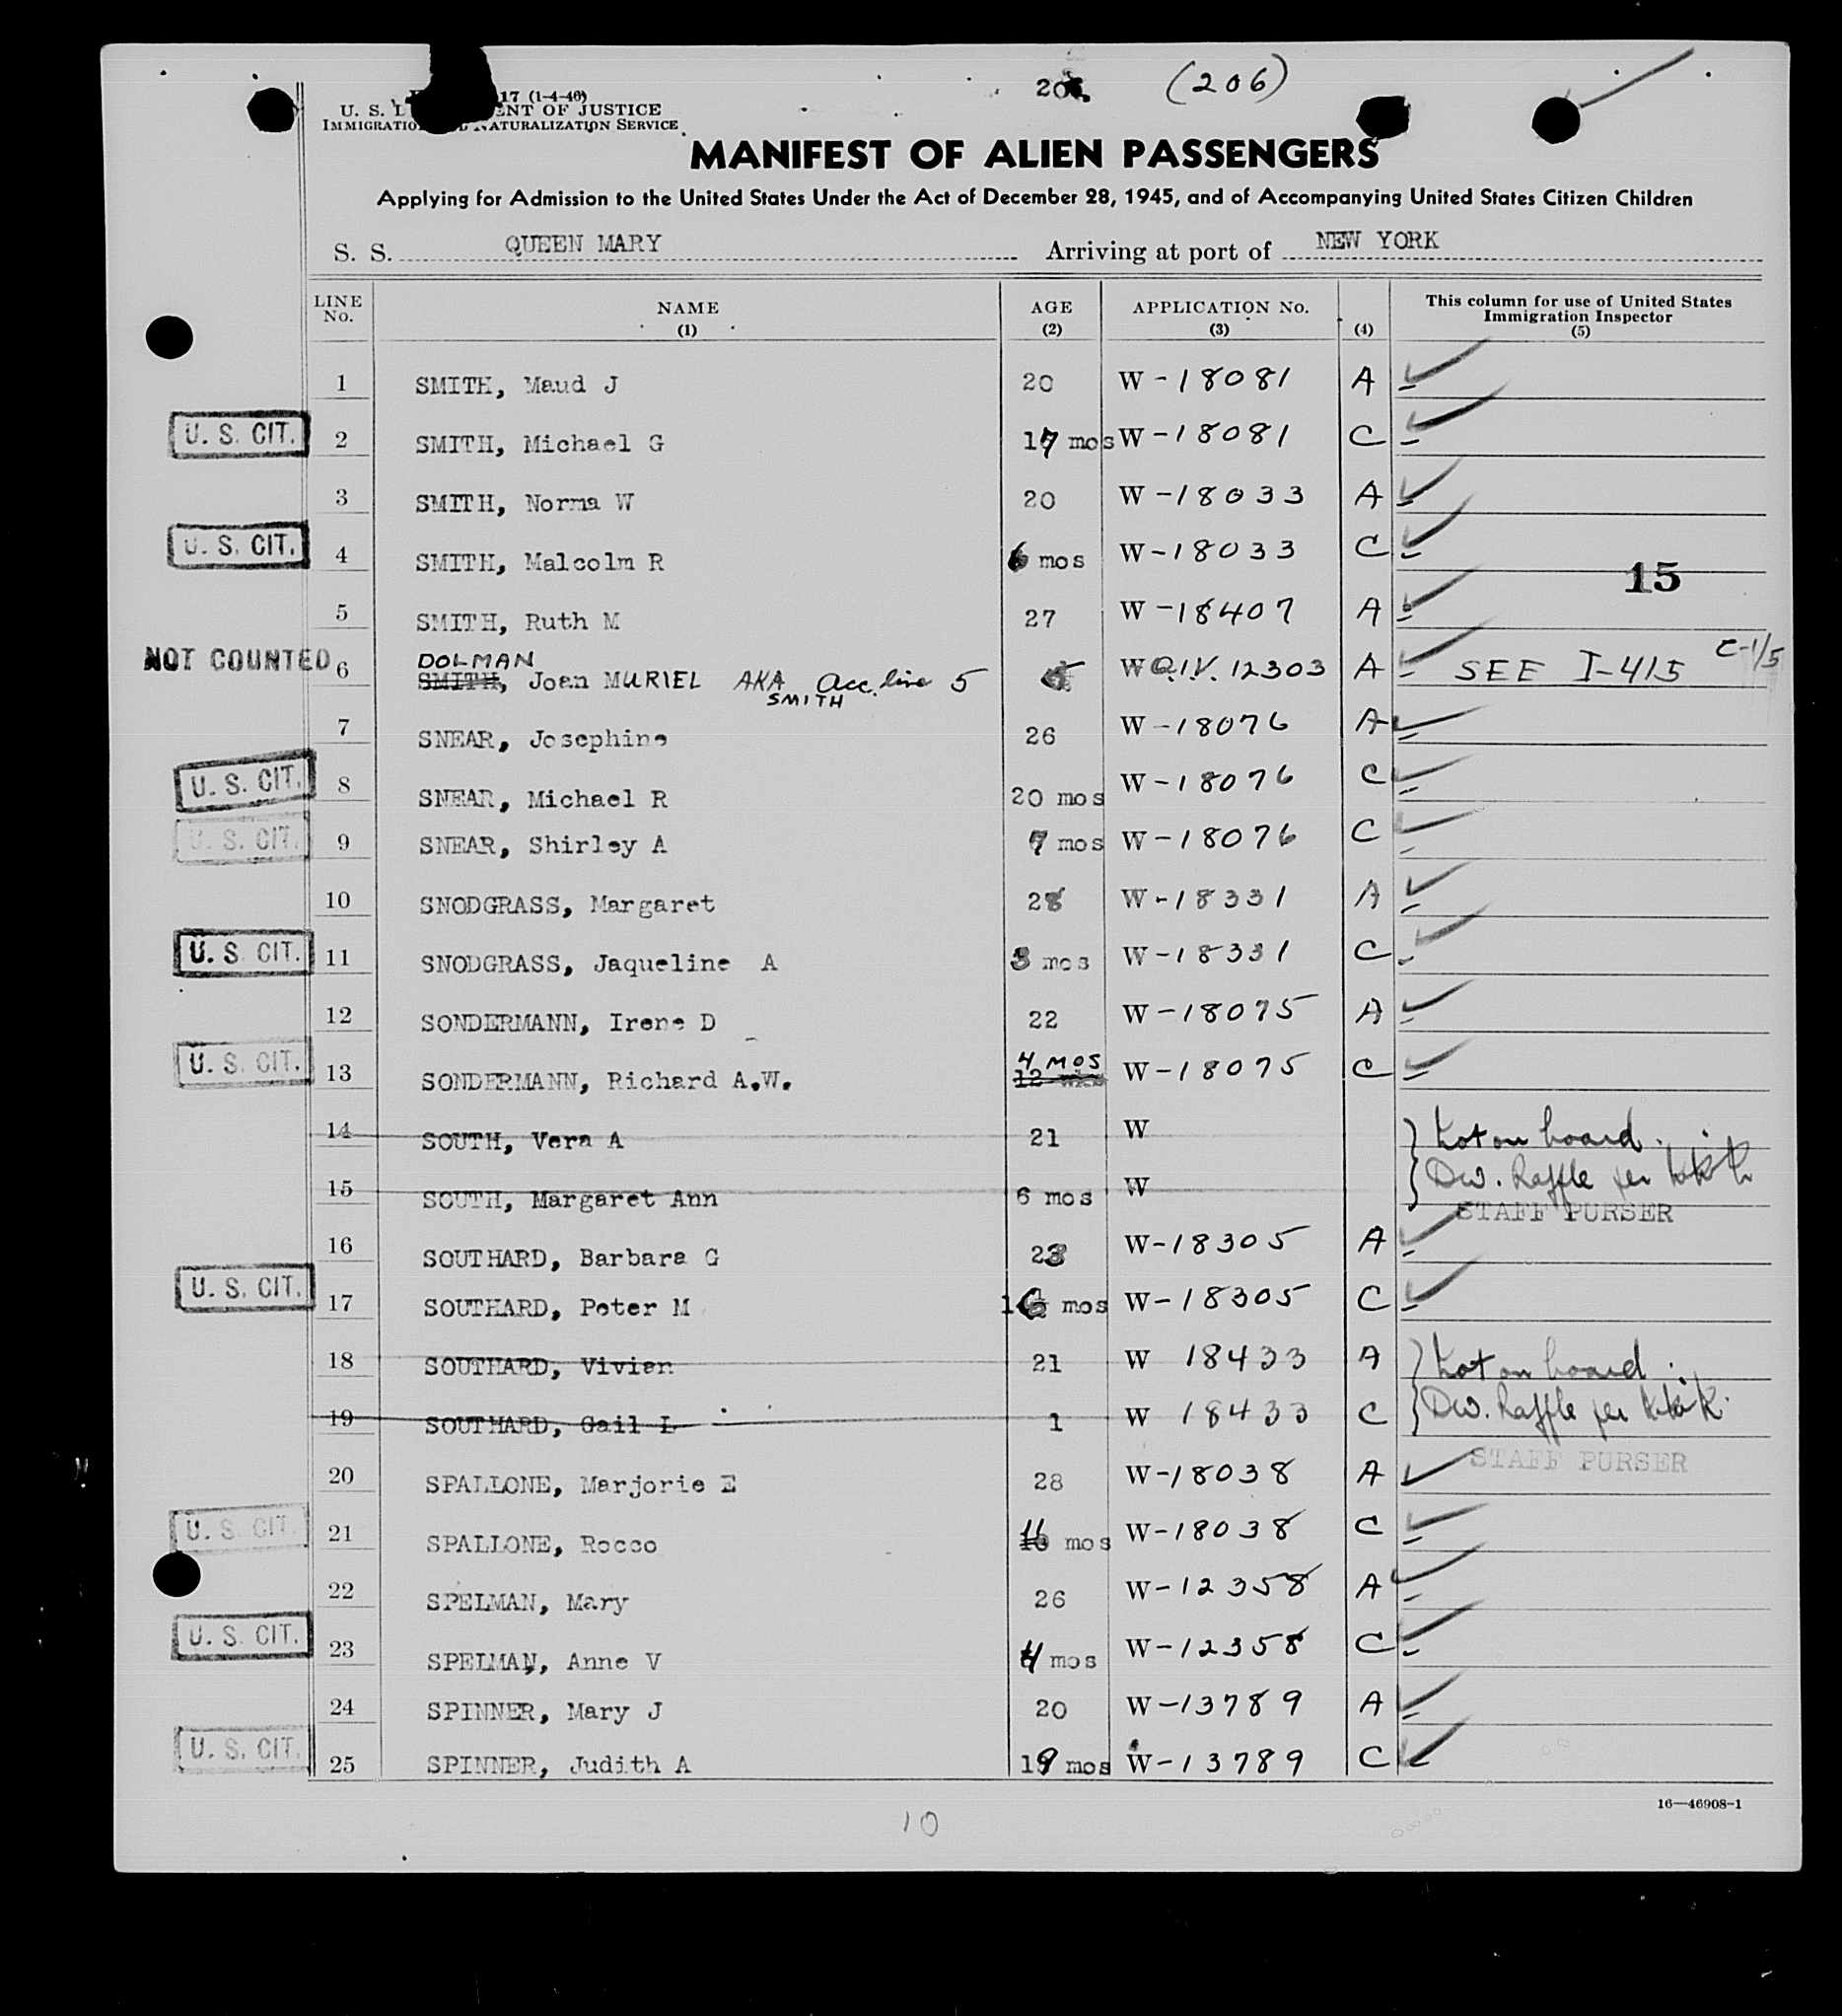 20 (206)
17 (1-4-46)
U. S. D ENT OF JUSTICE
IMMIGRATION NATURALIZATION SERVICE
MANIFEST OF ALIEN PASSENGERS
Applying for Admission to the United States Under the Act of December 28, 1945, and of Accompanying United States Citizen Children
S. S. QUEEN MARY Arriving at port of NEW YORK
LINE No. NAME (1) AGE (2) APPLICATION No. (3) (4) This column for use of United States Immigration Inspector (5)
1 SMITH, Maud J 20 W-18081 A
U. S. CIT. 2 SMITH, Michael G 17 mos W-18081 C
3 SMITH, Norma W 20 W-18033 A
U. S. CIT. 4 SMITH, Malcolm R 6 mos W-18033 C
15
5 SMITH, Ruth M 27 W-18407 A
NOT COUNTED 6 DOLMAN SMITH, Joan MURIEL AKA SMITH Acc. line 5 5 W Q.I.V. 12303 A SEE I-415 C-1/5
7 SNEAR, Josephine 26 W-18076 A
U. S. CIT. 8 SNEAR, Michael R 20 mos W-18076 C
U. S. CIT. 9 SNEAR, Shirley A 7 mos W-18076 C
10 SNODGRASS, Margaret 28 W-18331 A
U. S. CIT. 11 SNODGRASS, Jaqueline A 8 mos W-18331 C
12 SONDERMANN, Irene D 22 W-18075 A
U. S. CIT. 13 SONDERMANN, Richard A.W. 4 MOS 12 wks W-18075 C
14 SOUTH, Vera A 21 W Not on board.
15 SOUTH, Margaret Ann 6 mos W Dw. Raffle per
STAFF PURSER
16 SOUTHARD, Barbara G 23 W-18305 A
U. S. CIT. 17 SOUTHARD, Peter M 16 mos W-18305 C
18 SOUTHARD, Vivian 21 W 18433 A Not on board.
19 SOUTHARD, Gail L 1 W 18433 C Dw. Raffle per
STAFF PURSER
20 SPALLONE, Marjorie E 28 W-18038 A
U. S. CIT. 21 SPALLONE, Rocco 11 mos W-18038 C
22 SPELMAN, Mary 26 W-12358 A
U. S. CIT. 23 SPELMAN, Anne V 4 mos W-12358 C
24 SPINNER, Mary J 20 W-13789 A
U. S. CIT. 25 SPINNER, Judith A 19 mos W-13789 C
16—46908-1
10